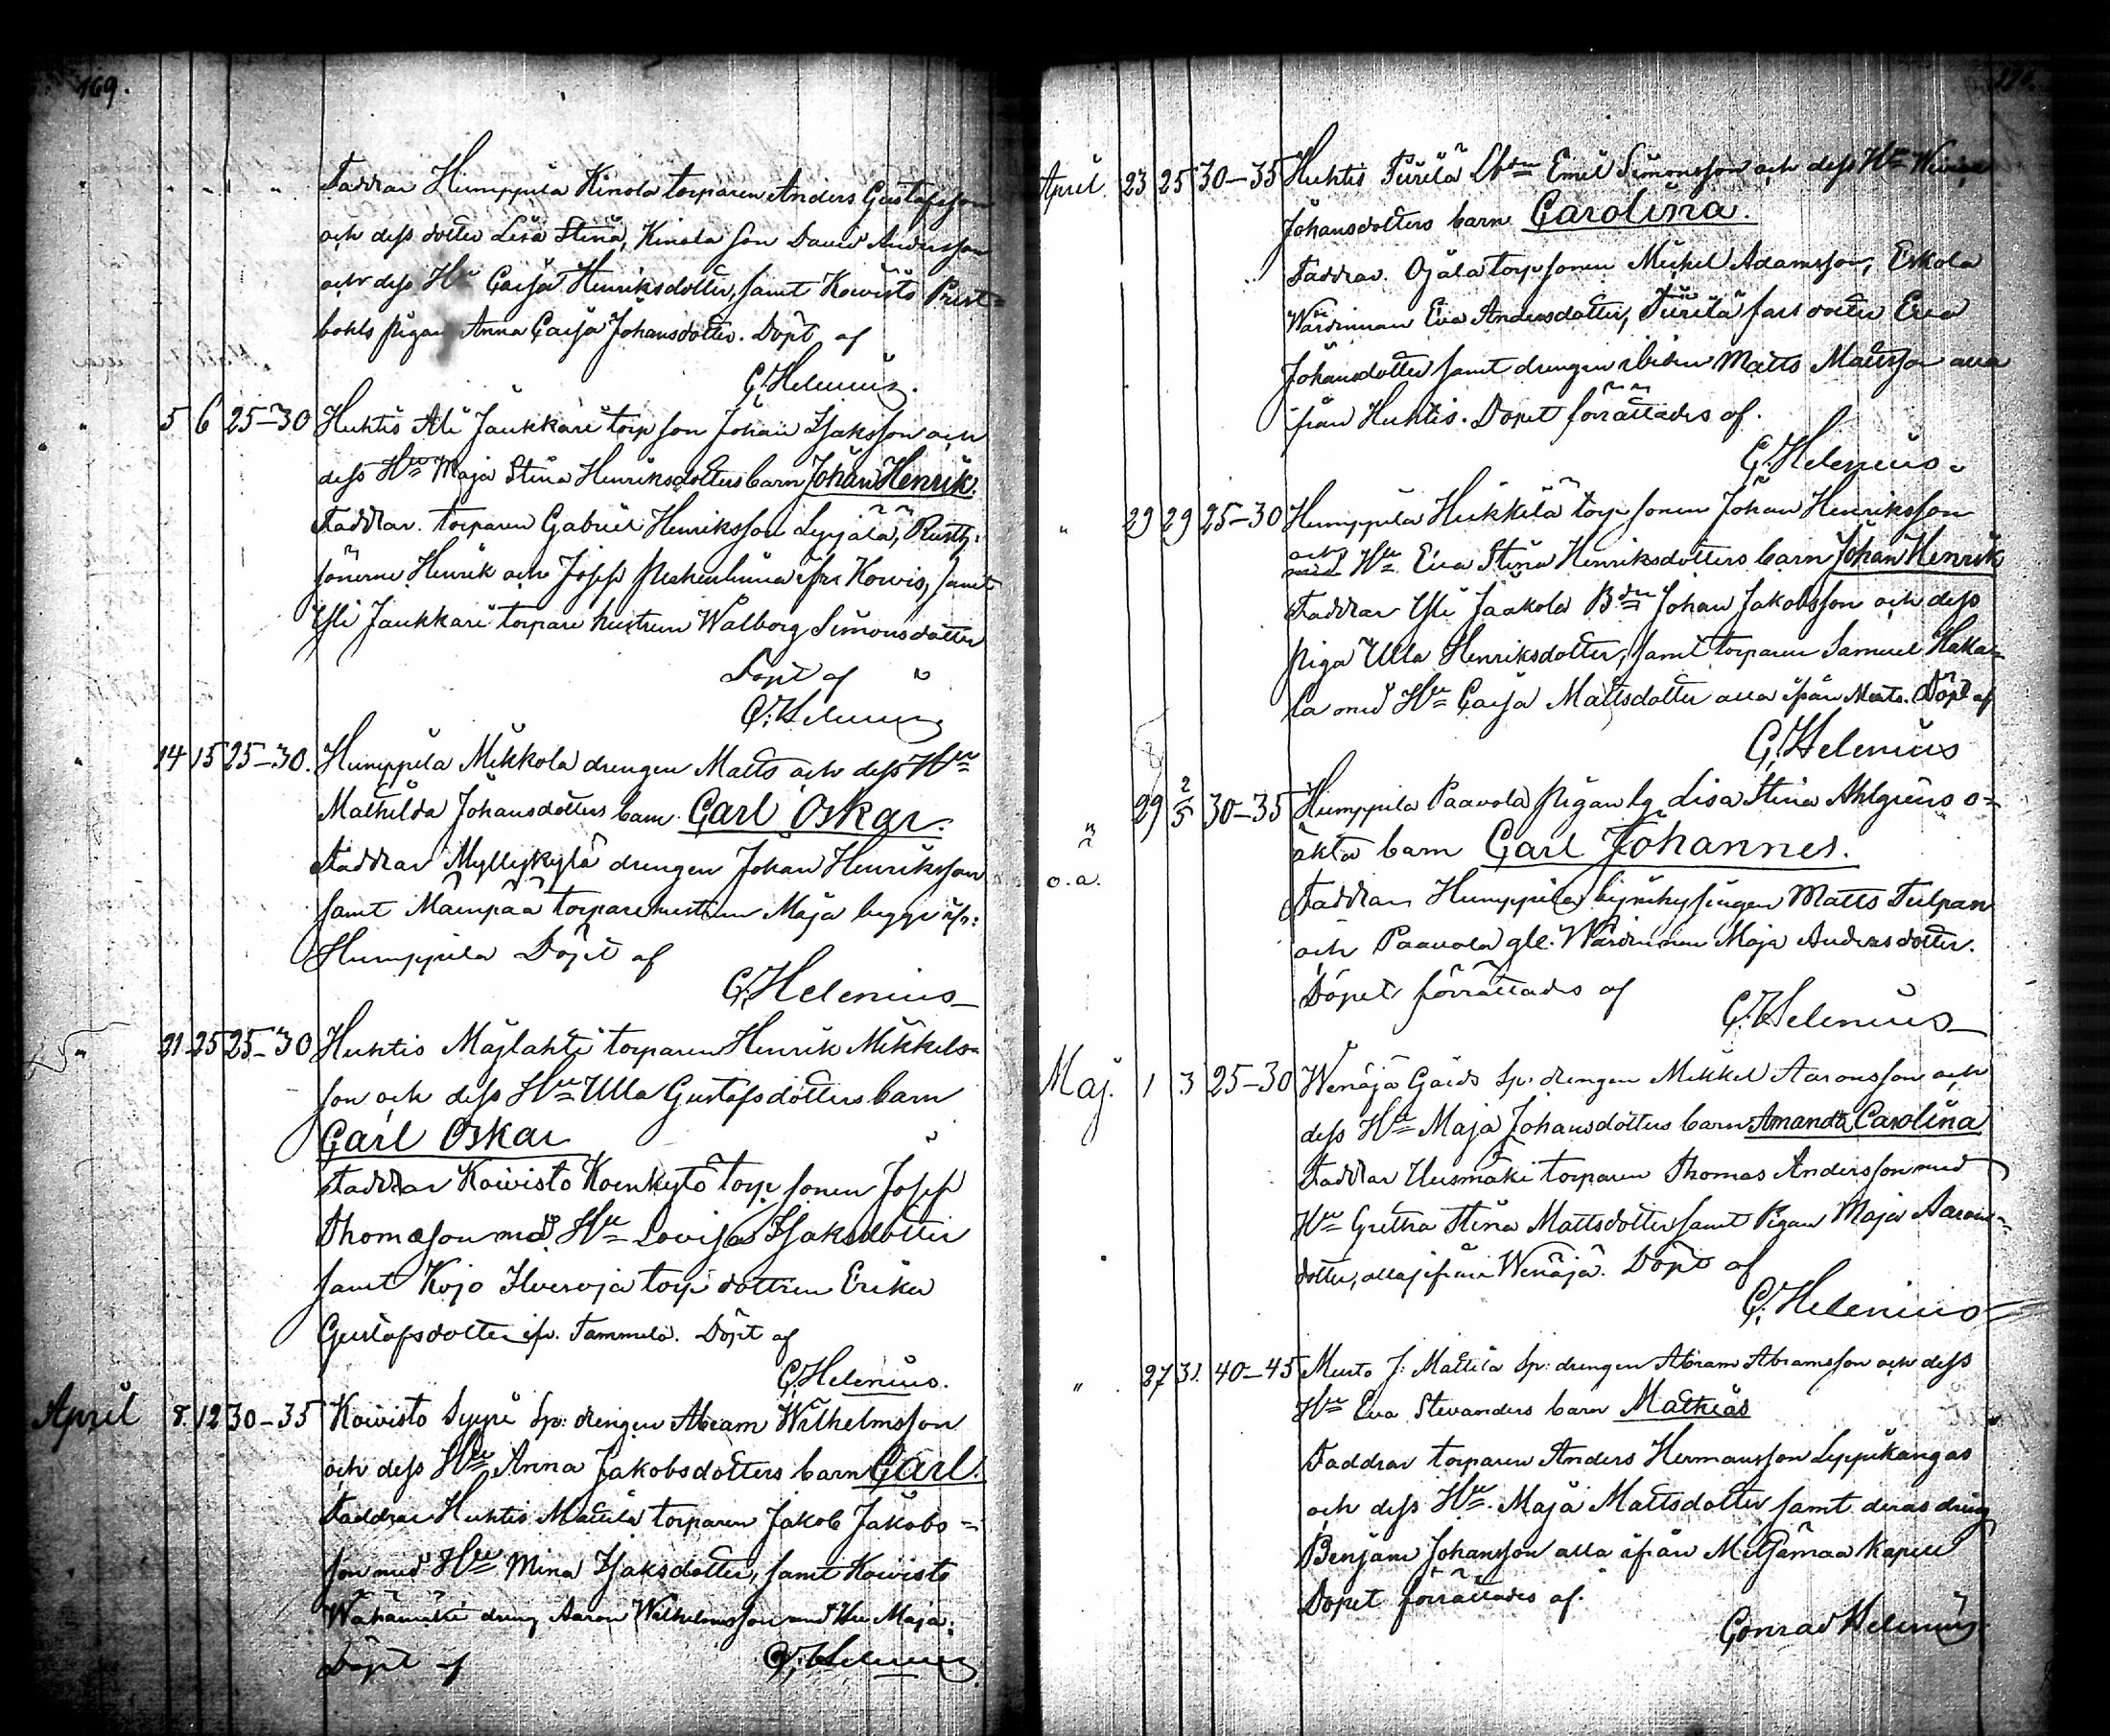 169.
Faddrar Humppila Kinola torparen Anders Gustafsson
och dess dotter Lisa Stina, Kinola son David Andersson
och dess Hu Cajsa Henriksdotter, samt Kowisto Prest=
bohls pigan Anna Cajsa Johansdotter. Döpt af
C. Helenius.
5 6 25–30 Huhtis Ali Jaukkari torp son Johan Isaksson och
dess Hu Maja Stina Henriksdotters barn Johan Henrik.
Faddrar. torparen Gabriel Henriksson Leppälä, Rusth.
sönerne Henrik och Josef ifrn Kowis, samt
Yli Jaukkari torpare hustrun Walborg Simonsdotter
Döpt af
C. Helenius
14 15 25–30. Humppila Mikkola drengen Matts och dess Hu
Mathilda Johansdotters barn Carl Oskar.
Faddrar Myllykylä drengen Johan Henriksson
samt Mämpää torparehustrun Maja begge ifr:
Humppila Döpt af
C. Helenius
21 25 25–30 Huhtis Majlahti torparen Henrik Mikkels=
son och dess Hu Ulla Gustafsdotters barn
Carl Oskar
Faddrar Koivisto Koenkytö torp sonen Josef
Thomasson med Hu Lovisa Isaksdotter
samt Kojo Ilvesoja torp dottren Erika
Gustafsdotter ifr. Tammela. Döpt af
C. Helenius.
April 8. 12 30–35 Koivisto Seppi Sp: drengen Abram Wilhelmsson
och dess Hu Anna Jakobsdotters barn Carl.
Faddrar Huhtis Mattila torparen Jakob Jakobs=
son med Hu Mina Isaksdotter, samt Koivisto
Wähämäki dreng Aaron Wilhelmsson med Hu Maja.
Döpt af C. Helenius
170.
April. 23 25 30–35 Huhtis Tuirila Lbdn Emil Simonsson och dess Hu
Johansdotters barn Carolina.
Faddrar. Ojala torp sonen Michel Adamsson, Eskola
Wärdinnan Eva Andersdotter, Tuirila fars dotter Eva
Johansdotter samt drengen ibidem Matts Mattsson alla
ifrån Huhtis. Dopet förrättades af.
C. Helenius.
" 29 29 25–30 Humppila Heikkilä torp sonen Johan Henriksson
och
med Hu Eva Stina Henriksdotters barn Johan Henrik
Faddrar Yli Jaakola Bdn Johan Jakobsson och dess
piga Ulla Henriksdotter, samt torparen Samuel Haka=
la med Hu Cajsa Mattsdotter alla ifrån Murto. Döpt af
C. Helenius
" 29 2/5 30–35 Humppila Paavola pigan lg Lisa Stina Ahlgrens o=
äkta barn Carl Johannes.
o. a.
Faddrar Humppila byinhysingen Matts Tulpan
och Paavola gle. Wärdinnan Maja Andersdotter.
Dopet förrättades af
C. Helenius
Maj. 1 3 25–30 Wenäjä Gärds Sp: drengen Mikkel Aaronsson och
dess Hu Maja Johansdotters barn Amanda Carolina
Faddrar Uusmäki torparen Thomas Andersson med
Hu Gretha Stina Mattsdotter samt Pigan Maja Aarons=
dotter, alla ifrån Wenäjä. Döpt af
C. Helenius
" 27 31. 40–45 Murto J: Mattila Sp: drengen Abram Abramsson och dess
Hu Eva Stevanders barn Mathias
Faddrar torparen Anders Hermansson Leppikangas
och dess Hu. Maja Mattsdotter samt deras dreng
Benjam Johansson alla ifrån Metsämaa Kapell
Dopet förrättades af.
Conrad Helenius